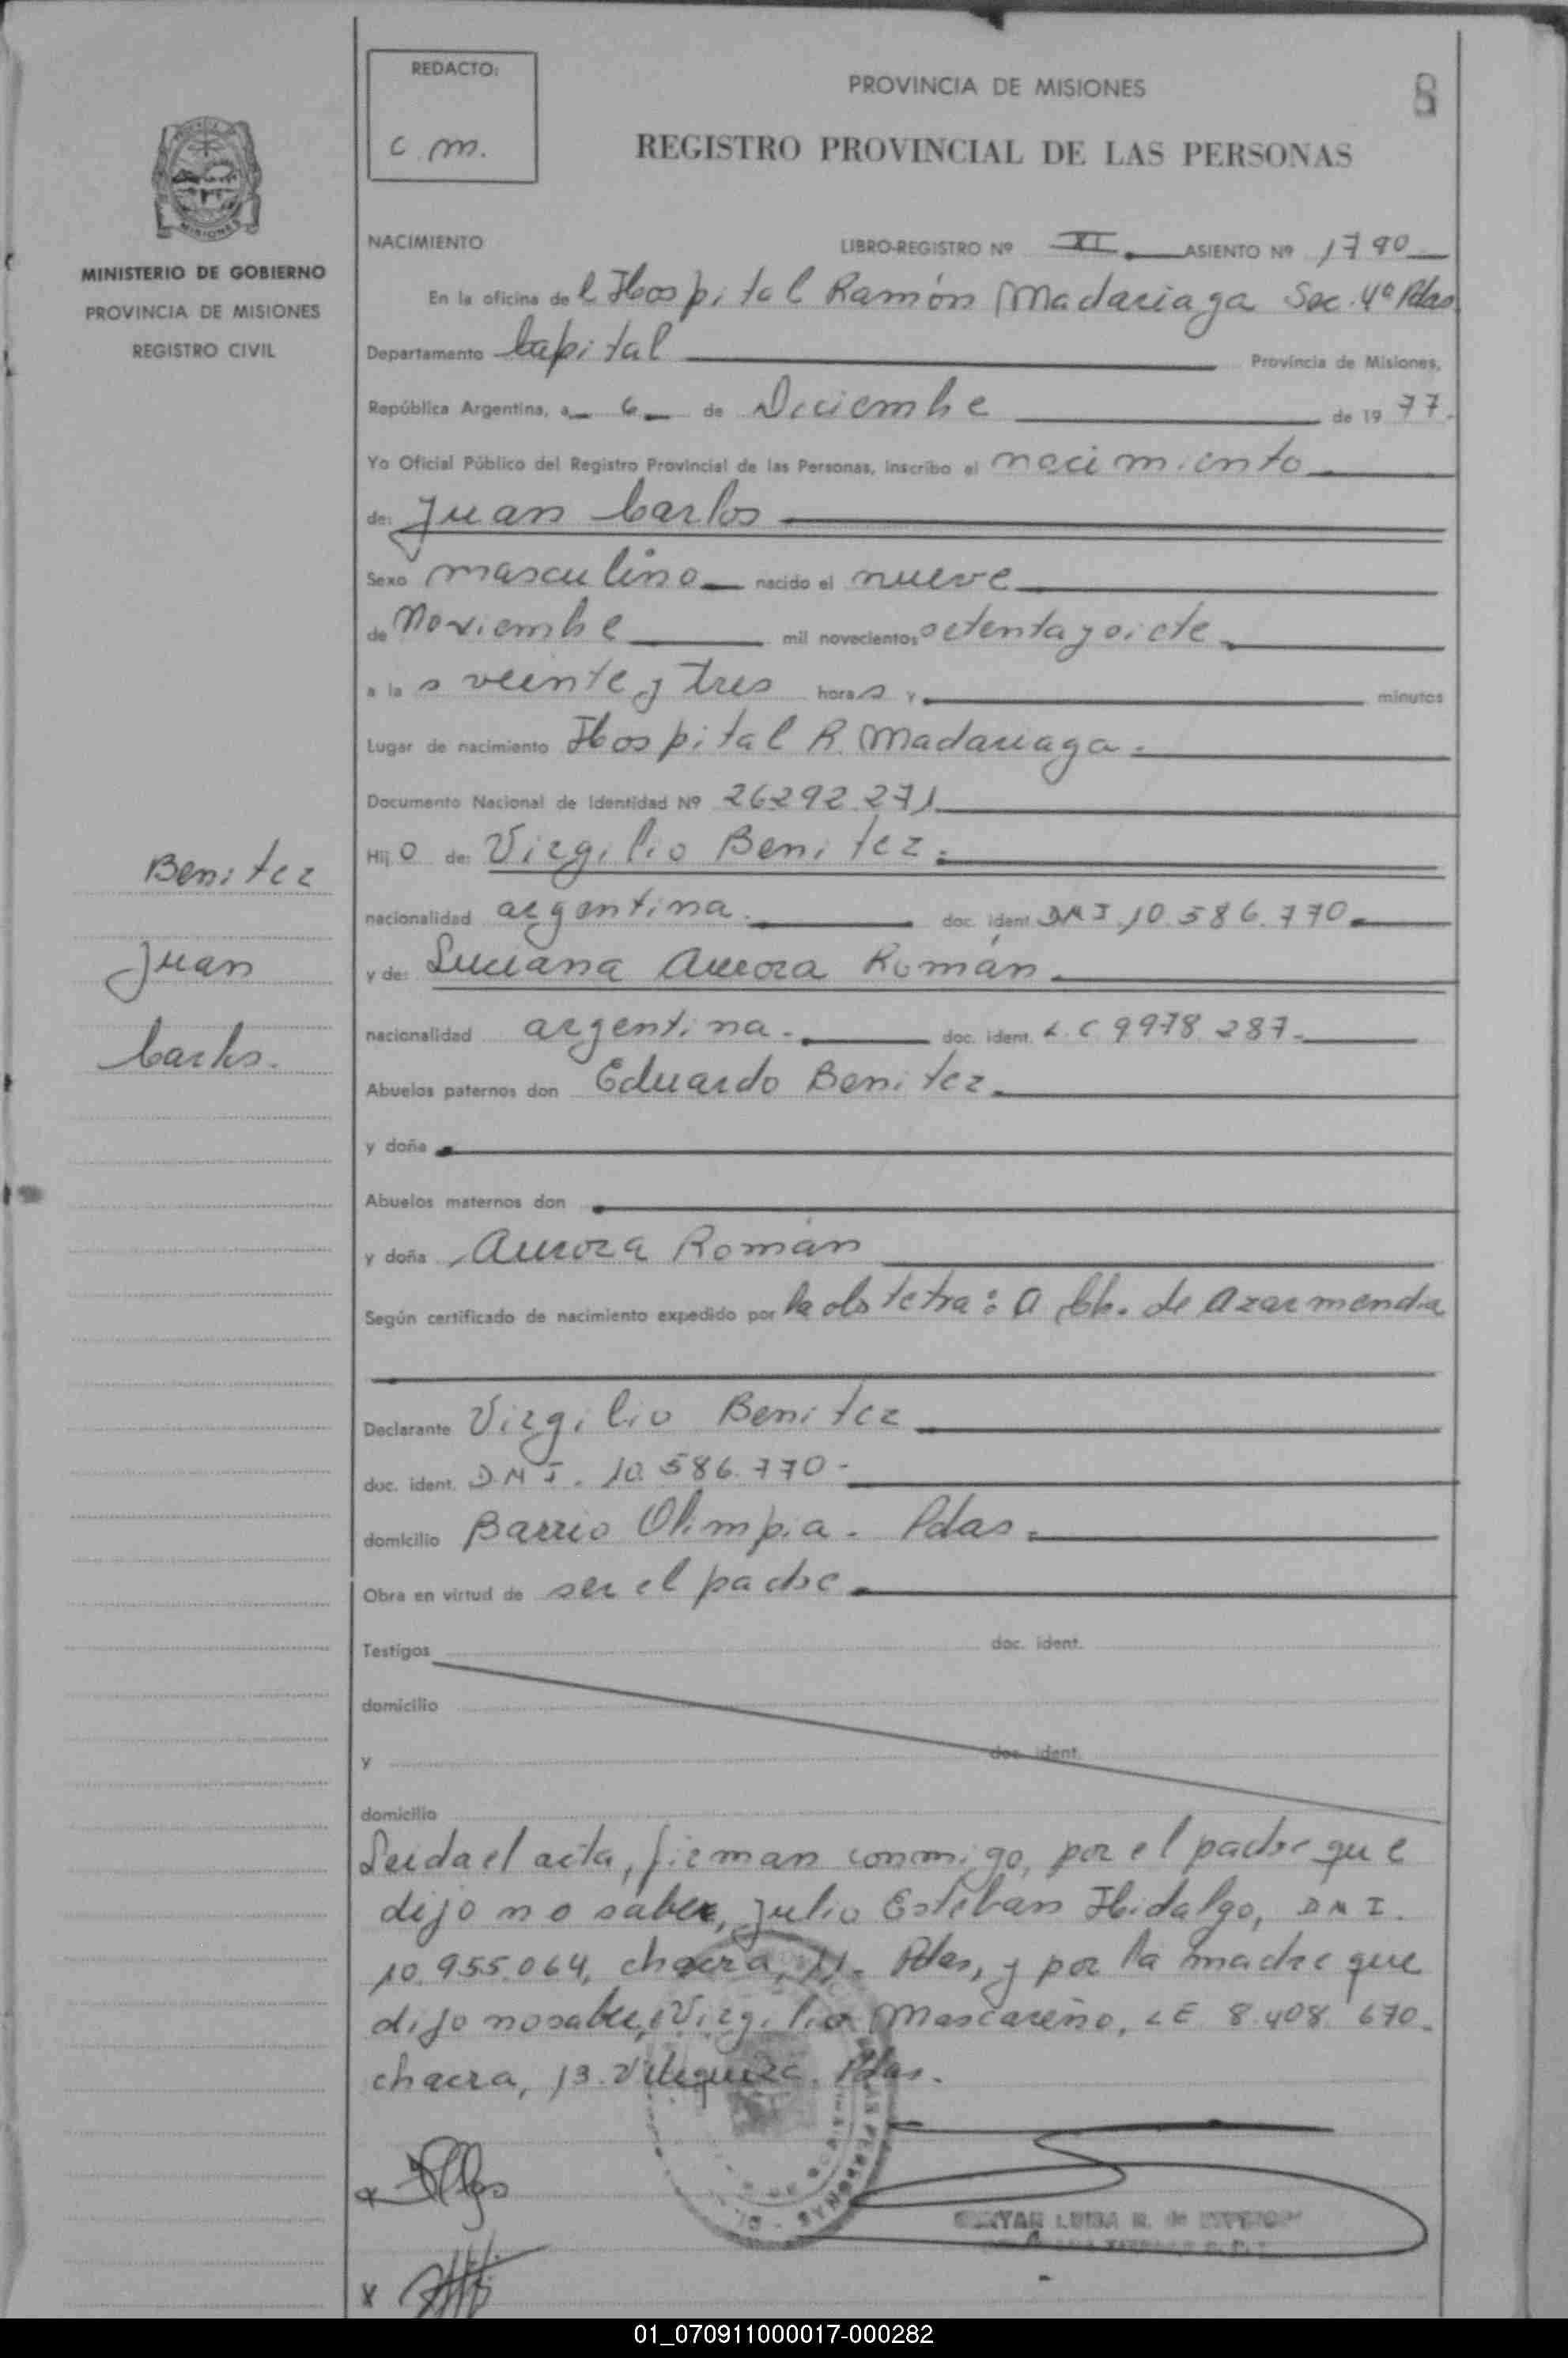 REDACTO:
c. m.
PROVINCIA DE MISIONES
8
REGISTRO PROVINCIAL DE LAS PERSONAS
MISIONES
MINISTERIO DE GOBIERNO
PROVINCIA DE MISIONES
REGISTRO CIVIL
NACIMIENTO LIBRO-REGISTRO Nº XI. ASIENTO Nº 1790
En la oficina del Hospital Ramón Madariaga Sec. 4ª Pdas.
Departamento Capital Provincia de Misiones,
República Argentina, a 6 de Diciembre de 1977.
Yo Oficial Público del Registro Provincial de las Personas, inscribo el nacimiento
de: Juan Carlos
Sexo masculino nacido el nueve
de Noviembre mil novecientos setenta y siete
a las veinte y tres horas y minutos
Lugar de nacimiento Hospital R. Madariaga.
Documento Nacional de Identidad Nº 26.292.271
Hijo de: Virgilio Benitez.
nacionalidad argentina. doc. ident. DNI 10.586.770.
y de: Luciana Aurora Román.
nacionalidad argentina. doc. ident. L.C 9978.287.
Abuelos paternos don Eduardo Benitez
y doña
Abuelos maternos don
y doña Aurora Román
Según certificado de nacimiento expedido por la obstetra: A de Azarmendia
Declarante Virgilio Benitez
doc. ident. D.N.I. 10.586.770.
domicilio Barrio Olimpia. Pdas.
Obra en virtud de ser el padre
Testigos doc. ident.
domicilio
y doc. ident.
domicilio
Leida el acta, firman conmigo, por el padre que
dijo no saber, Julio Esteban Hidalgo, DNI.
10.955.064, chacra, 11. Pdas, y por la madre que
dijo no saber, Virgilio Mascareño, LE 8.408.670.
chacra, 13. Pdas.
Benitez
Juan
Carlos.
LUISA N. de
01_070911000017-000282